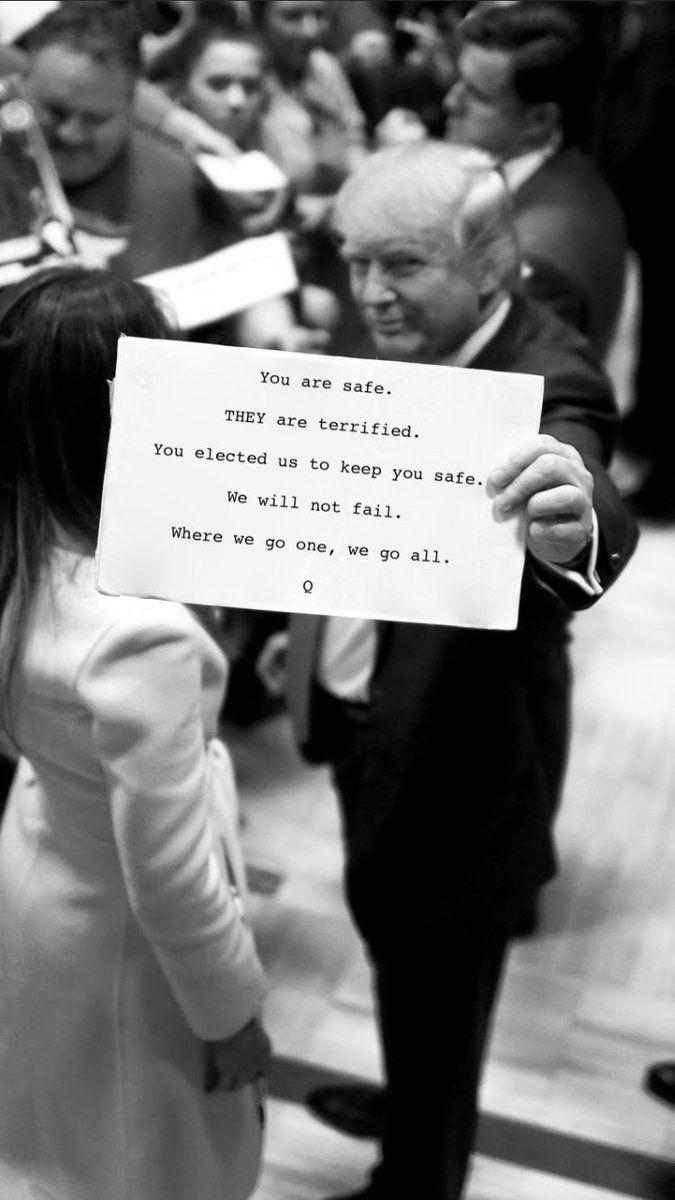 You are safe.
THEY are terrified.
You elected us to keep you safe.
We will not fail.
Where we go one, we go all.
Q